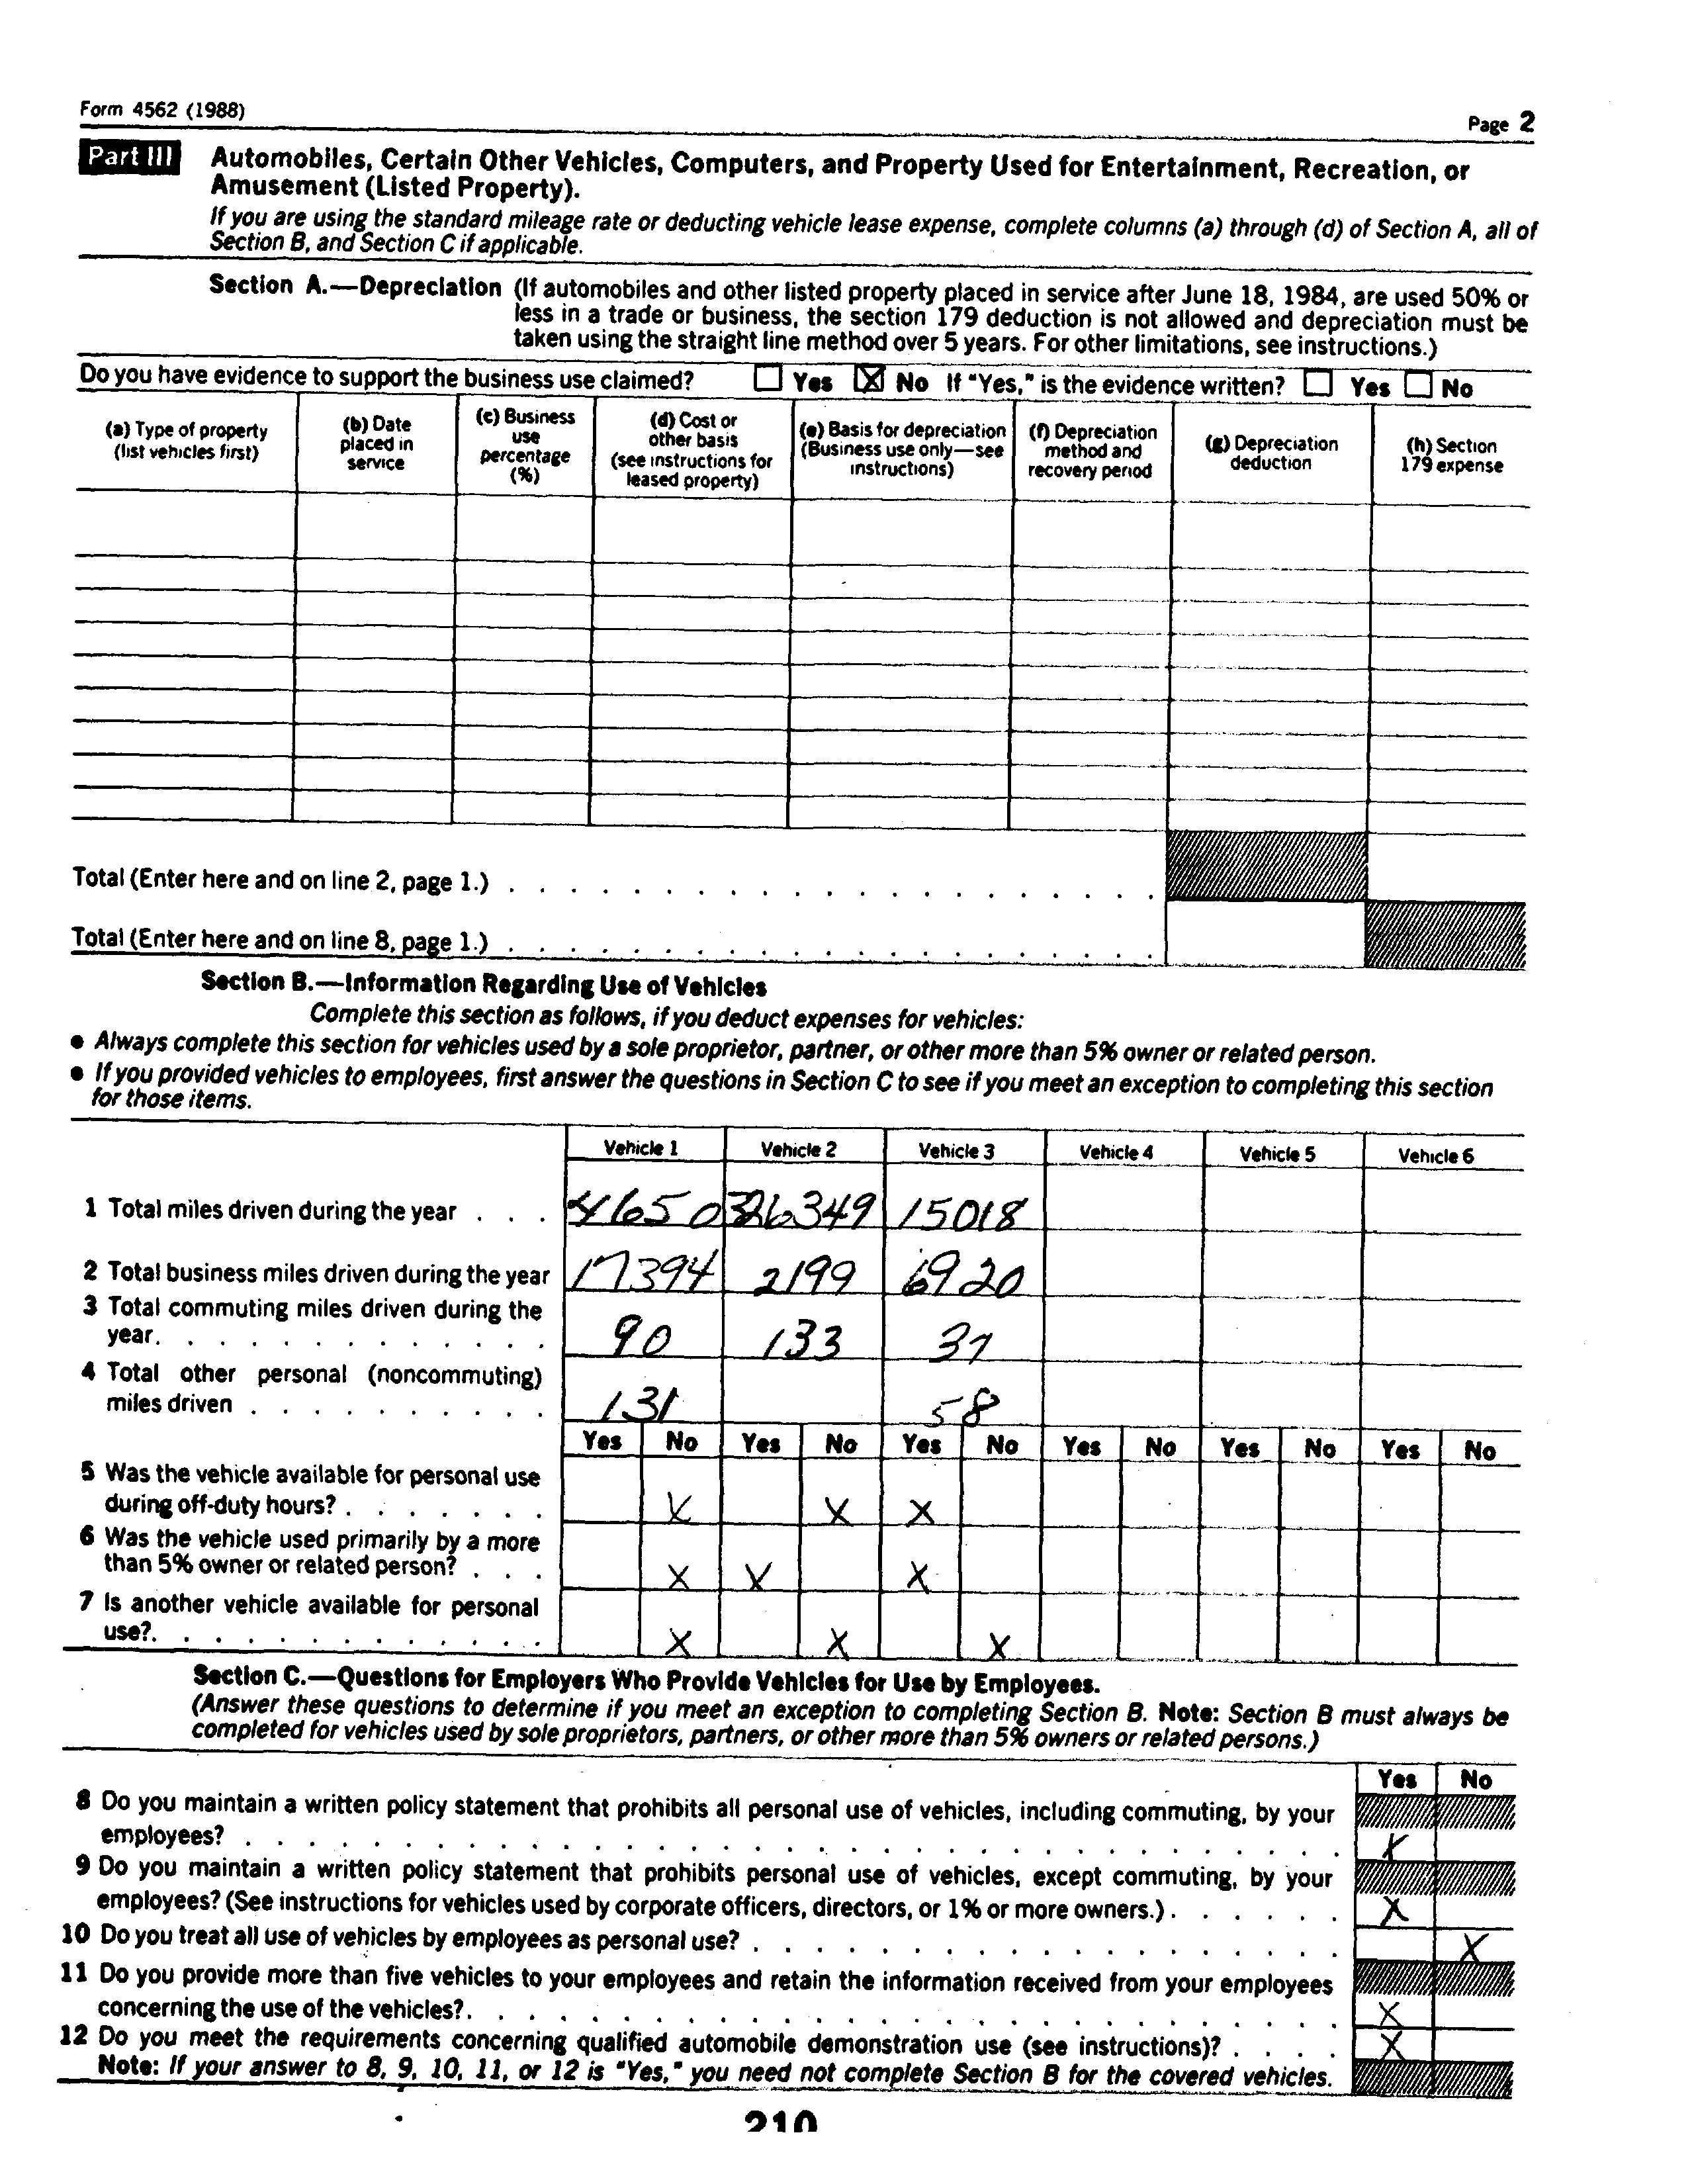 Form 4562 (1988)
Page 2
Part III Automobiles, Certain Other Vehicles, Computers, and Property Used for Entertainment, Recreation, or
Amusement (Listed Property).
If you are using the standard mileage rate or deducting vehicle lease expense, complete columns (a) through (d) of Section A, all of
Section B, and Section C if applicable.
Section A.—Depreciation (If automobiles and other listed property placed in service after June 18, 1984, are used 50% or
less in a trade or business, the section 179 deduction is not allowed and depreciation must be
taken using the straight line method over 5 years. For other limitations, see instructions.)
Do you have evidence to support the business use claimed? Yes X No If "Yes," is the evidence written? Yes No
(a) Type of property
(list vehicles first)
(b) Date
placed in
service
(c) Business
use
percentage
(%)
(d) Cost or
other basis
(see instructions for
leased property)
(e) Basis for depreciation
(Business use only—see
instructions)
(f) Depreciation
method and
recovery period
(g) Depreciation
deduction
(h) Section
179 expense
Total (Enter here and on line 2, page 1.) . . . . . . . . . . . . . . . . . . . . .
Total (Enter here and on line 8, page 1.) . . . . . . . . . . . . . . . . . . . . .
Section B.—Information Regarding Use of Vehicles
Complete this section as follows, if you deduct expenses for vehicles:
● Always complete this section for vehicles used by a sole proprietor, partner, or other more than 5% owner or related person.
● If you provided vehicles to employees, first answer the questions in Section C to see if you meet an exception to completing this section
for those items.
Vehicle 1 Vehicle 2 Vehicle 3 Vehicle 4 Vehicle 5 Vehicle 6
1 Total miles driven during the year . . . 15018
2 Total business miles driven during the year 17394 2199 6920
3 Total commuting miles driven during the
year. . . . . . . . . . . . . 90 133 37
4 Total other personal (noncommuting)
miles driven . . . . . . . . . . 131 58
Yes No Yes No Yes No Yes No Yes No Yes No
5 Was the vehicle available for personal use
during off-duty hours? . . . . . . . X X X
6 Was the vehicle used primarily by a more
than 5% owner or related person? . . . X X X
7 Is another vehicle available for personal
use?. . . . . . . . . . . . . X X X
Section C.—Questions for Employers Who Provide Vehicles for Use by Employees.
(Answer these questions to determine if you meet an exception to completing Section B. Note: Section B must always be
completed for vehicles used by sole proprietors, partners, or other more than 5% owners or related persons.)
Yes No
8 Do you maintain a written policy statement that prohibits all personal use of vehicles, including commuting, by your
employees? . . . . . . . . . . . . . . . . . . . . . . . . . . . . . . . . . . . X
9 Do you maintain a written policy statement that prohibits personal use of vehicles, except commuting, by your
employees? (See instructions for vehicles used by corporate officers, directors, or 1% or more owners.) . . . . . . X
10 Do you treat all use of vehicles by employees as personal use? . . . . . . . . . . . . . . . . . . . X
11 Do you provide more than five vehicles to your employees and retain the information received from your employees
concerning the use of the vehicles?. . . . . . . . . . . . . . . . . . . . . . . . . . . . X
12 Do you meet the requirements concerning qualified automobile demonstration use (see instructions)? . . . . X
Note: If your answer to 8, 9, 10, 11, or 12 is "Yes," you need not complete Section B for the covered vehicles.
210